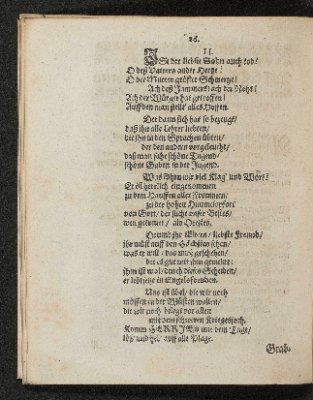 26.
II.
ISt der liebste Sohn auch todt?
O deß Vattern ander Hertze!
O der Mutter gröster Schmertze!
Ach deß Jammers! ach der Noht!
Ach der Würger hat getroffen!
Auff den man stellt' alles Hoffen.
Der dann sich hat so bezeugt/
daß ihn alle Lehrer liebten/
die ihn in den Sprachen übten/
der den andern vorgeleucht/
daß man sahe schöne Tugend/
schöne Gaben in der Jugend.
Was wöhnn wir viel Klag' und Wort?
Er ist herrlich eingenommen
zu dem Hauffen aller Frommen/
zu der hohen Himmelspfort
von Gott/ der sucht unser Bestes/
wen genommen/ als
Drumb ihr Eltern/ liebste Freund/
ihr müst auff den Höchsten sehen/
was er will/ das muß geschehen/
der es gut mit ihm gemeint:
ihm ist wol/ durch dieses Scheiden/
er ist jetzt in Engelsfreuden.
Uns ist übel/ die wir noch
müssen in der Wüsten wallen/
die wir noch
mit dem schweren Kriegesjoch.
Komm HERR JEsu mit dem Tage/
löß und heb' auff alle Plage.
Grab-